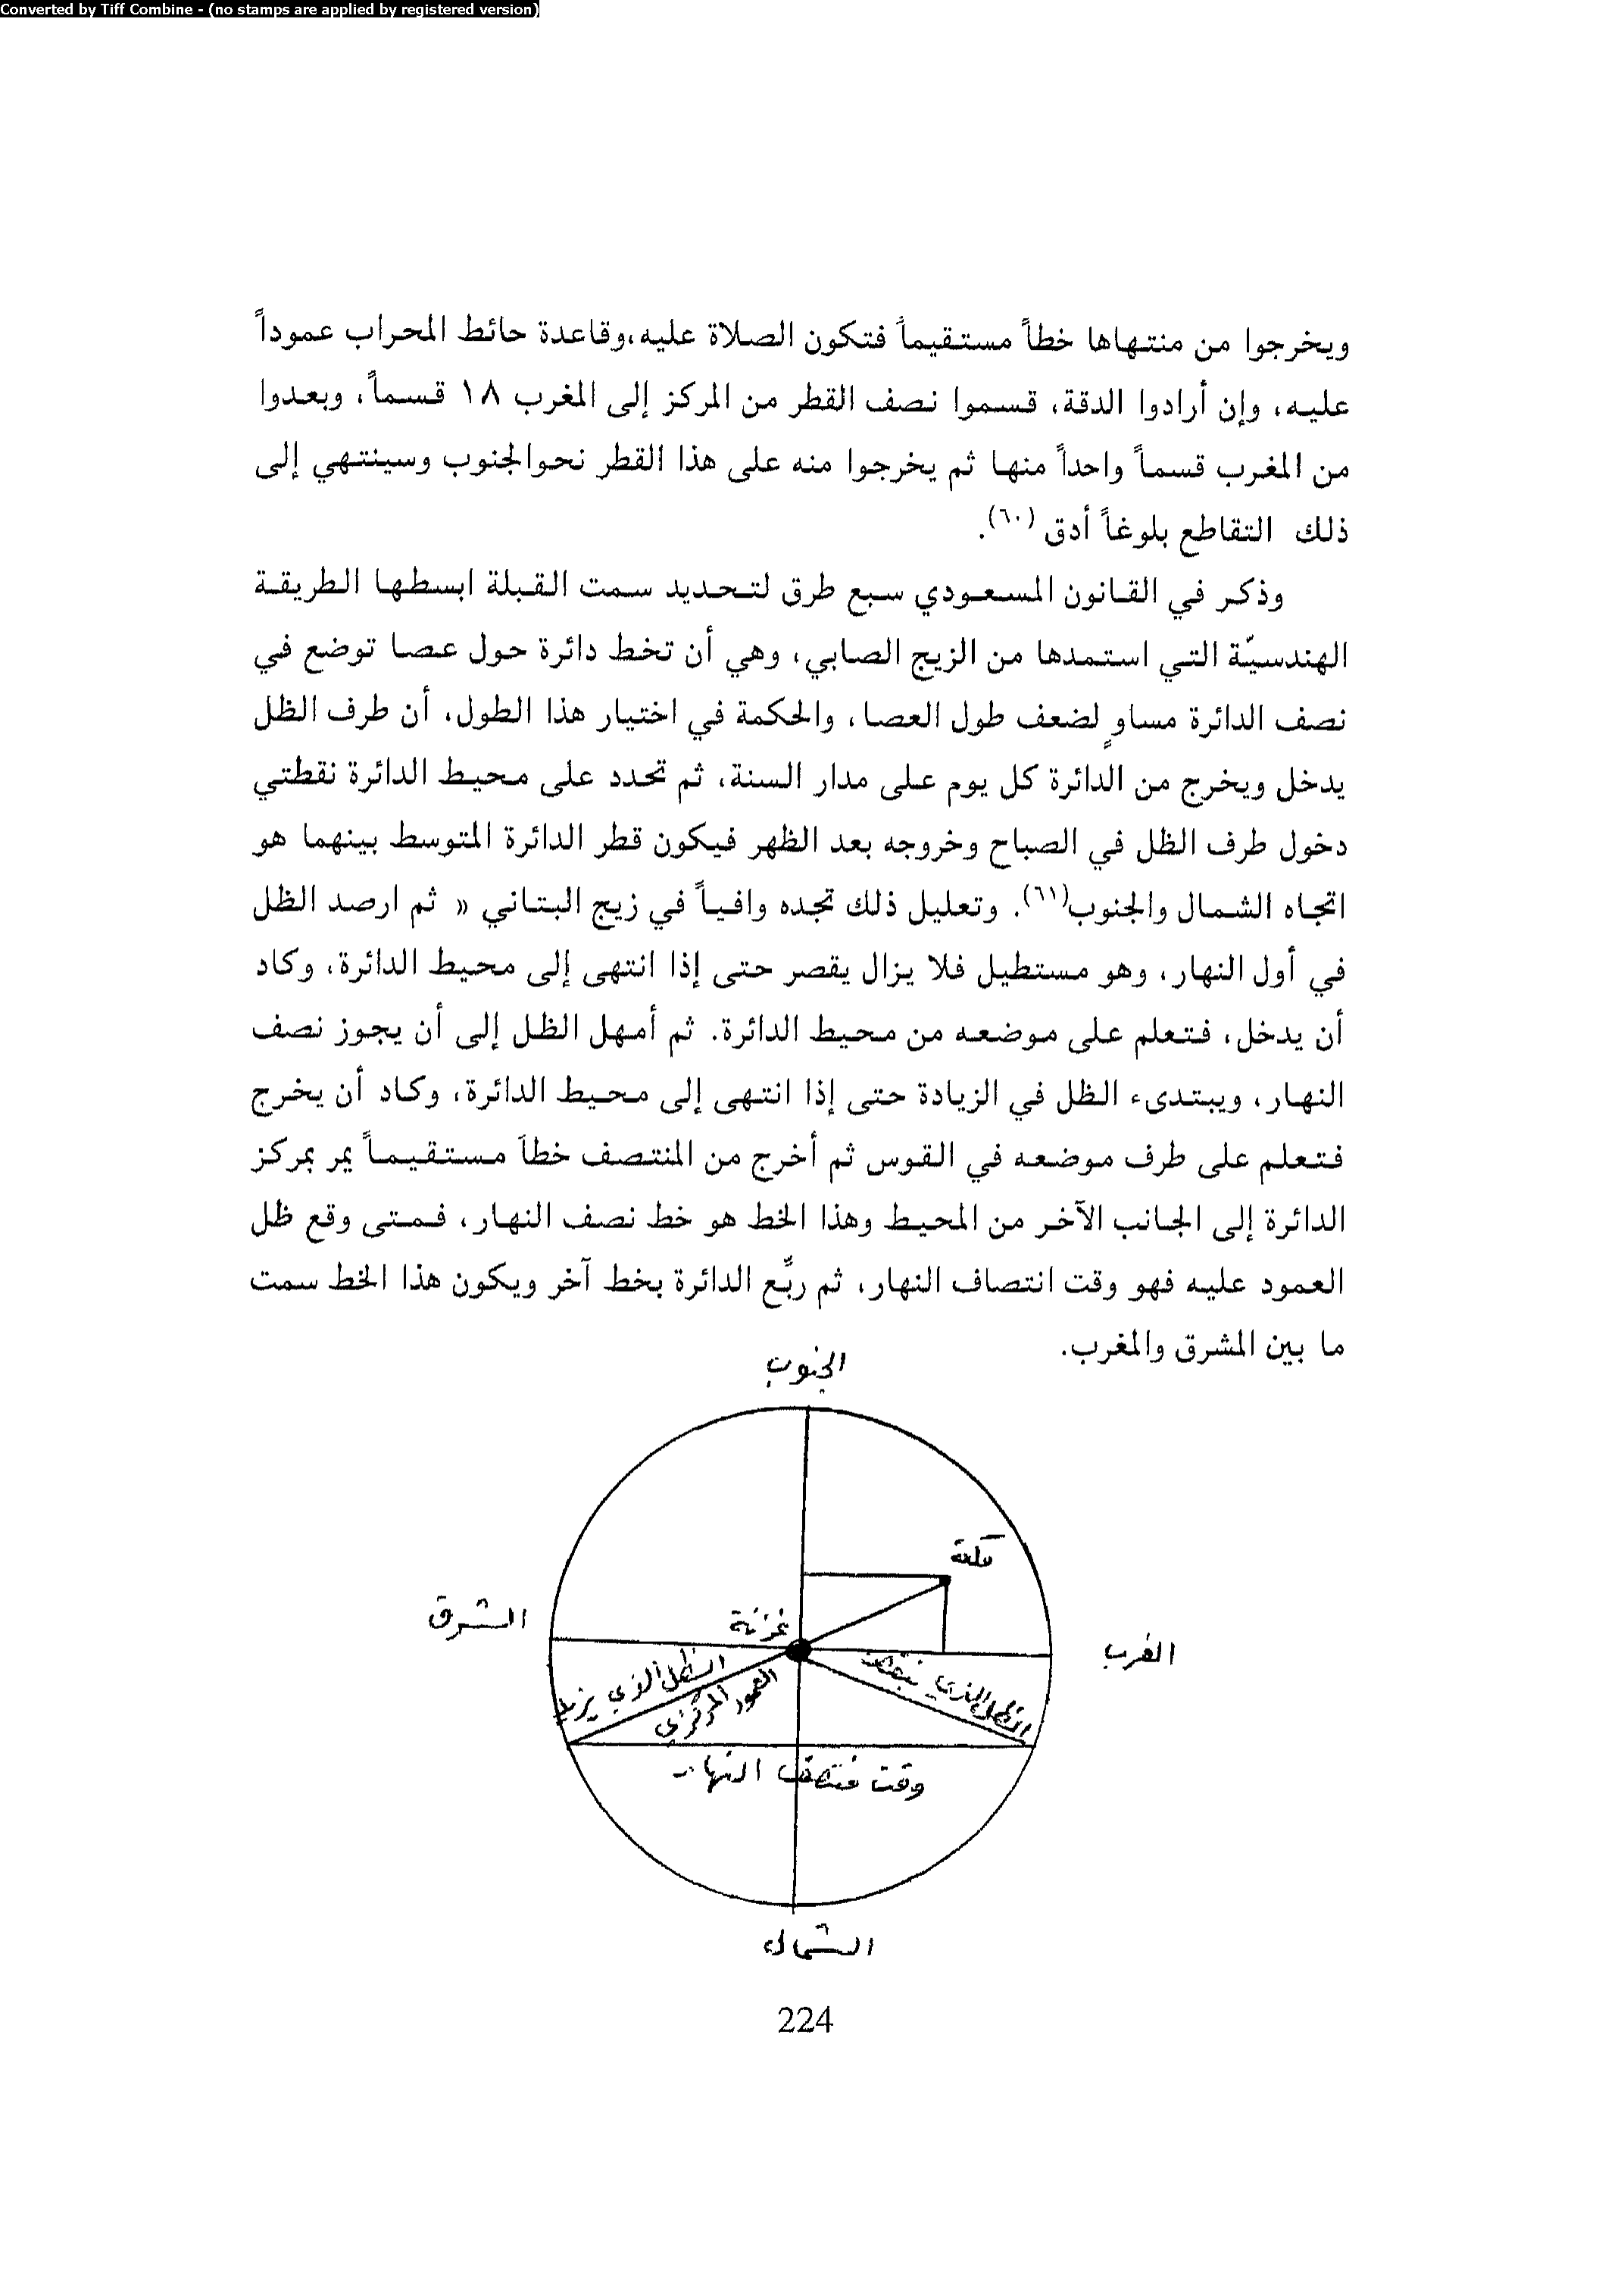 Converted by Tiff Combine - (no stamps are applied by registered version)
ويخرجوا من منتهاها خطاً مستقيماً فتكون الصلاة عليه،وقاعدة حائط المحراب عموداً
عليه، وإن أرادوا الدقة، قسموا نصف القطر من المركز إلى المغرب ١٨ قسماً، وبعدوا
من المغرب قسماً واحداً منها ثم يخرجوا منه على هذا القطر نحوالجنوب وسينتهي إلى
ذلك التقاطع بلوغاً أدق (٦٠).
وذكر في القانون المسعودي سبع طرق لتحديد سمت القبلة ابسطها الطريقة
الهندسيّة التي استمدها من الزيج الصابي، وهي أن تخط دائرة حول عصا توضع في
نصف الدائرة مساوٍ لضعف طول العصا، والحكمة في اختيار هذا الطول، أن طرف الظل
يدخل ويخرج من الدائرة كل يوم على مدار السنة، ثم تحدد على محيط الدائرة نقطتي
دخول طرف الظل في الصباح وخروجه بعد الظهر فيكون قطر الدائرة المتوسط بينهما هو
اتجاه الشمال والجنوب(٦١). وتعليل ذلك تجده وافياً في زيج البتاني « ثم ارصد الظل
في أول النهار، وهو مستطيل فلا يزال يقصر حتى إذا انتهى إلى محيط الدائرة، وكاد
أن يدخل، فتعلم على موضعه من محيط الدائرة. ثم أمهل الظل إلى أن يجوز نصف
النهار، ويبتدىء الظل في الزيادة حتى إذا انتهى إلى محيط الدائرة، وكاد أن يخرج
فتعلم على طرف موضعه في القوس ثم أخرج من المنتصف خطاً مستقيماً يمر بمركز
الدائرة إلى الجانب الآخر من المحيط وهذا الخط هو خط نصف النهار، فمتى وقع ظل
العمود عليه فهو وقت انتصاف النهار، ثم ربّع الدائرة بخط آخر ويكون هذا الخط سمت
ما بين المشرق والمغرب.
الجنوب
مكة
غزنة
الشرق
الغرب
الظل الذي يزيد
العمود المركزي
الظل الذي ينقص
وقت منتصف النهار
الشمال
224